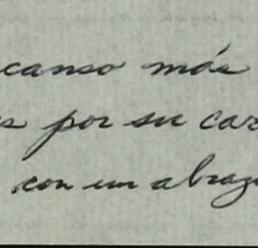 canso más
s por su car
con un abraz